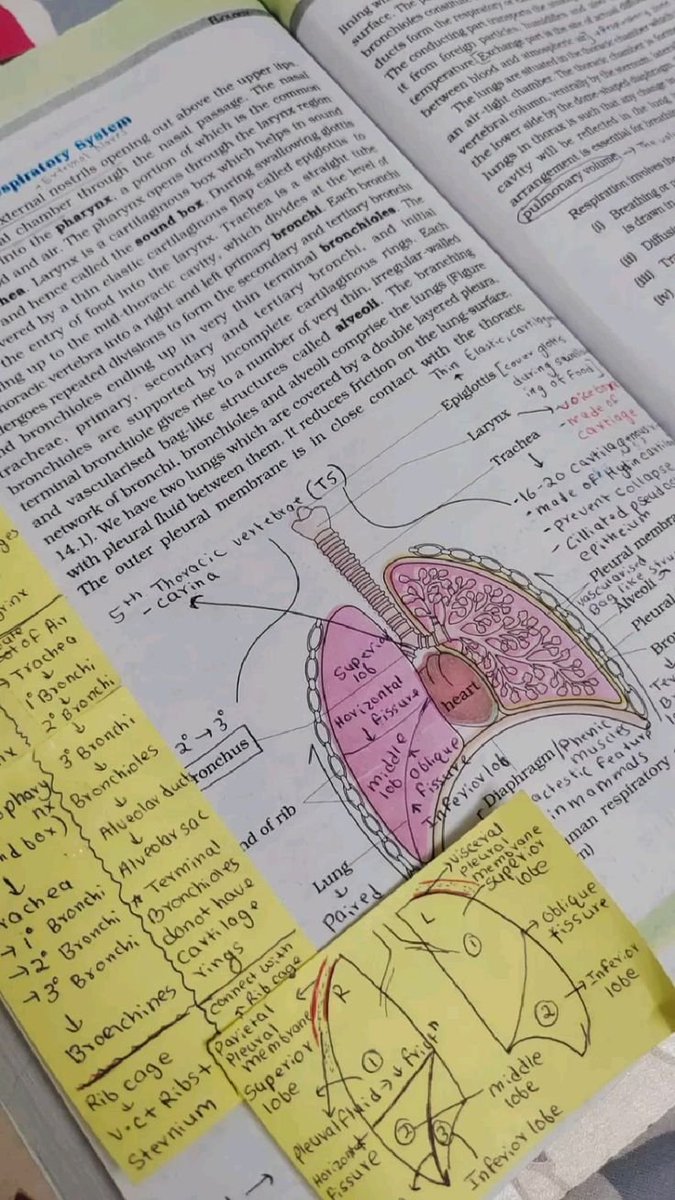 Respiratory System
External nostrils opening out above the upper lips.
chamber through the nasal passage. The nasal
into the pharynx, a portion of which is the common
and air. The pharynx opens through the larynx region
Larynx is a cartilaginous box which helps in sound
and hence called the sound box. During swallowing glottis
by a thin elastic cartilaginous flap called epiglottis to
the entry of food into the larynx. Trachea is a straight tube
up to the mid-thoracic cavity, which divides at the level of
thoracic vertebra into a right and left primary bronchi. Each bronchi
undergoes repeated divisions to form the secondary and tertiary bronchi
and bronchioles ending up in very thin terminal bronchioles. The
tracheae, primary, secondary and tertiary bronchi, and initial
bronchioles are supported by incomplete cartilaginous rings. Each
terminal bronchiole gives rise to a number of very thin, irregular-walled
and vascularised bag-like structures called alveoli. The branching
network of bronchi, bronchioles and alveoli comprise the lungs (Figure
14.1). We have two lungs which are covered by a double layered pleura,
with pleural fluid between them. It reduces friction on the lung-surface.
The outer pleural membrane is in close contact with the thoracic
lining
surface. The
bronchioles
form the respiratory
The conducting part
it from foreign particles, humidifies and
temperature. Exchange part is the site of actual
between blood and atmospheric air.
The lungs are situated in the thoracic chamber
an air-tight chamber. The thoracic chamber is formed
vertebral column, ventrally by the sternum, laterally
the lower side by the dome-shaped diaphragm.
lungs in thorax is such that any change
cavity will be reflected in the lung
arrangement is essential for breathing
pulmonary volume
Respiration involves the
(i) Breathing or
is drawn in
(ii) Diffusion
(iii)
(iv)
Thin Elastic, cartilage
Epiglottis [cover glottis
during swallow
ing of food]
Larynx → voice box
- made of
cartilage
Trachea
↓
-16-20 cartilageneous
- made of Hylin cartilage
- prevent collapse
- cilliated pseudos
epitheium
Pleural membrane
vascularised
Bag like stru
Alveoli
Pleural
5th Thoracic vertebrae (T5)
- carina
Superior
lob
Horizontal
fissure
↓
middle
lob
Oblique
fissure
Inferior lob
heart
2° → 3°
Bronchus
end of rib
Lung
↓
Paired
Diaphragm/Phenic
muscles
feature
in mammals
human respiratory
Trachea
↓
1° Bronchi
↓
2° Bronchi
↓
3° Bronchi
↓
Bronchioles
↓
Alveolar duct
↓
Alveolar sac
* Terminal
Bronchioles
donot have
Cartilage
rings
↓
Trachea
→ 1° Bronchi
→ 2° Bronchi
→ 3° Bronchi
↓
Broerchines
Rib cage
↓
V.C+ Ribs+
Sternium
connect with
↑ Rib cage
Parietal
Pleural
membrane
Superior
lobe
R
①
②
③
Pleural fluid → ↓ frigtn
Horizontal
fissure
visceral
pleural
membrane
superior
lobe
L
①
②
Oblique
fissure
Inferior
lobe
middle
lobe
Inferior lobe